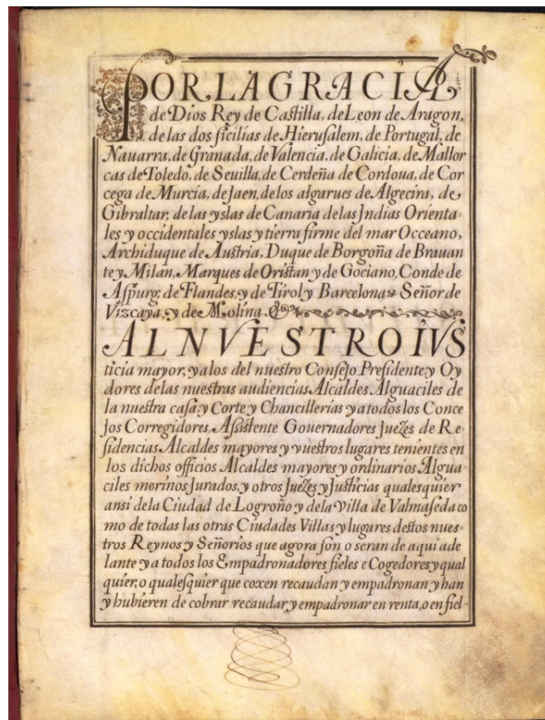 POR, LA GRACIA
de Dios Rey de Castilla, de Leon de Aragon,
de las dos sicilias de Hierusalem, de Portugal, de
Nauarra, de Granada, de Valencia, de Galicia, de Mallor
cas de Toledo, de Seuilla, de Cerdeña de Cordoua, de Cor
cega de Murcia, de Jaen, de los algarues de Algecira, de
Gibraltar, de las yslas de Canaria de las Jndias Orienta-
les y occidentales yslas y tierra firme del mar Occeano,
Archiduque de Austria, Duque de Borgoña de Brauan
te y Milan, Marques de Oristan y de Gociano, Conde de
Aspurg, de Flandes, y de Tirol y Barcelona Señor de
Vizcaya, y de Molina. &
AL NVESTRO IVS
ticia mayor, y a los del nuestro Consejo Presidente y Oy
dores de las nuestras audiencias Alcaldes, Alguaciles de
la nuestra casa y Corte y Chancillerias y a todos los Conce
jos Corregidores, Asistente Gouernadores Juezes de Re-
sidencias Alcaldes mayores y vuestros lugares tenientes en
los dichos officios Alcaldes mayores y ordinarios Algua-
ciles merinos Jurados, y otros Juezes y Justicias qualesquier
ansi de la Ciudad de Logroño y de la Villa de Valmaseda co
mo de todas las otras Ciudades Villas y lugares destos nues-
tros Reynos y Señorios que agora son o seran de aqui ade
lante y a todos los Empadronadores fieles e Cogedores y qual
quier, o qualesquier que coxen recaudan y empadronan y han
y hubieren de cobrar recaudar, y empadronar en renta, o en fiel-